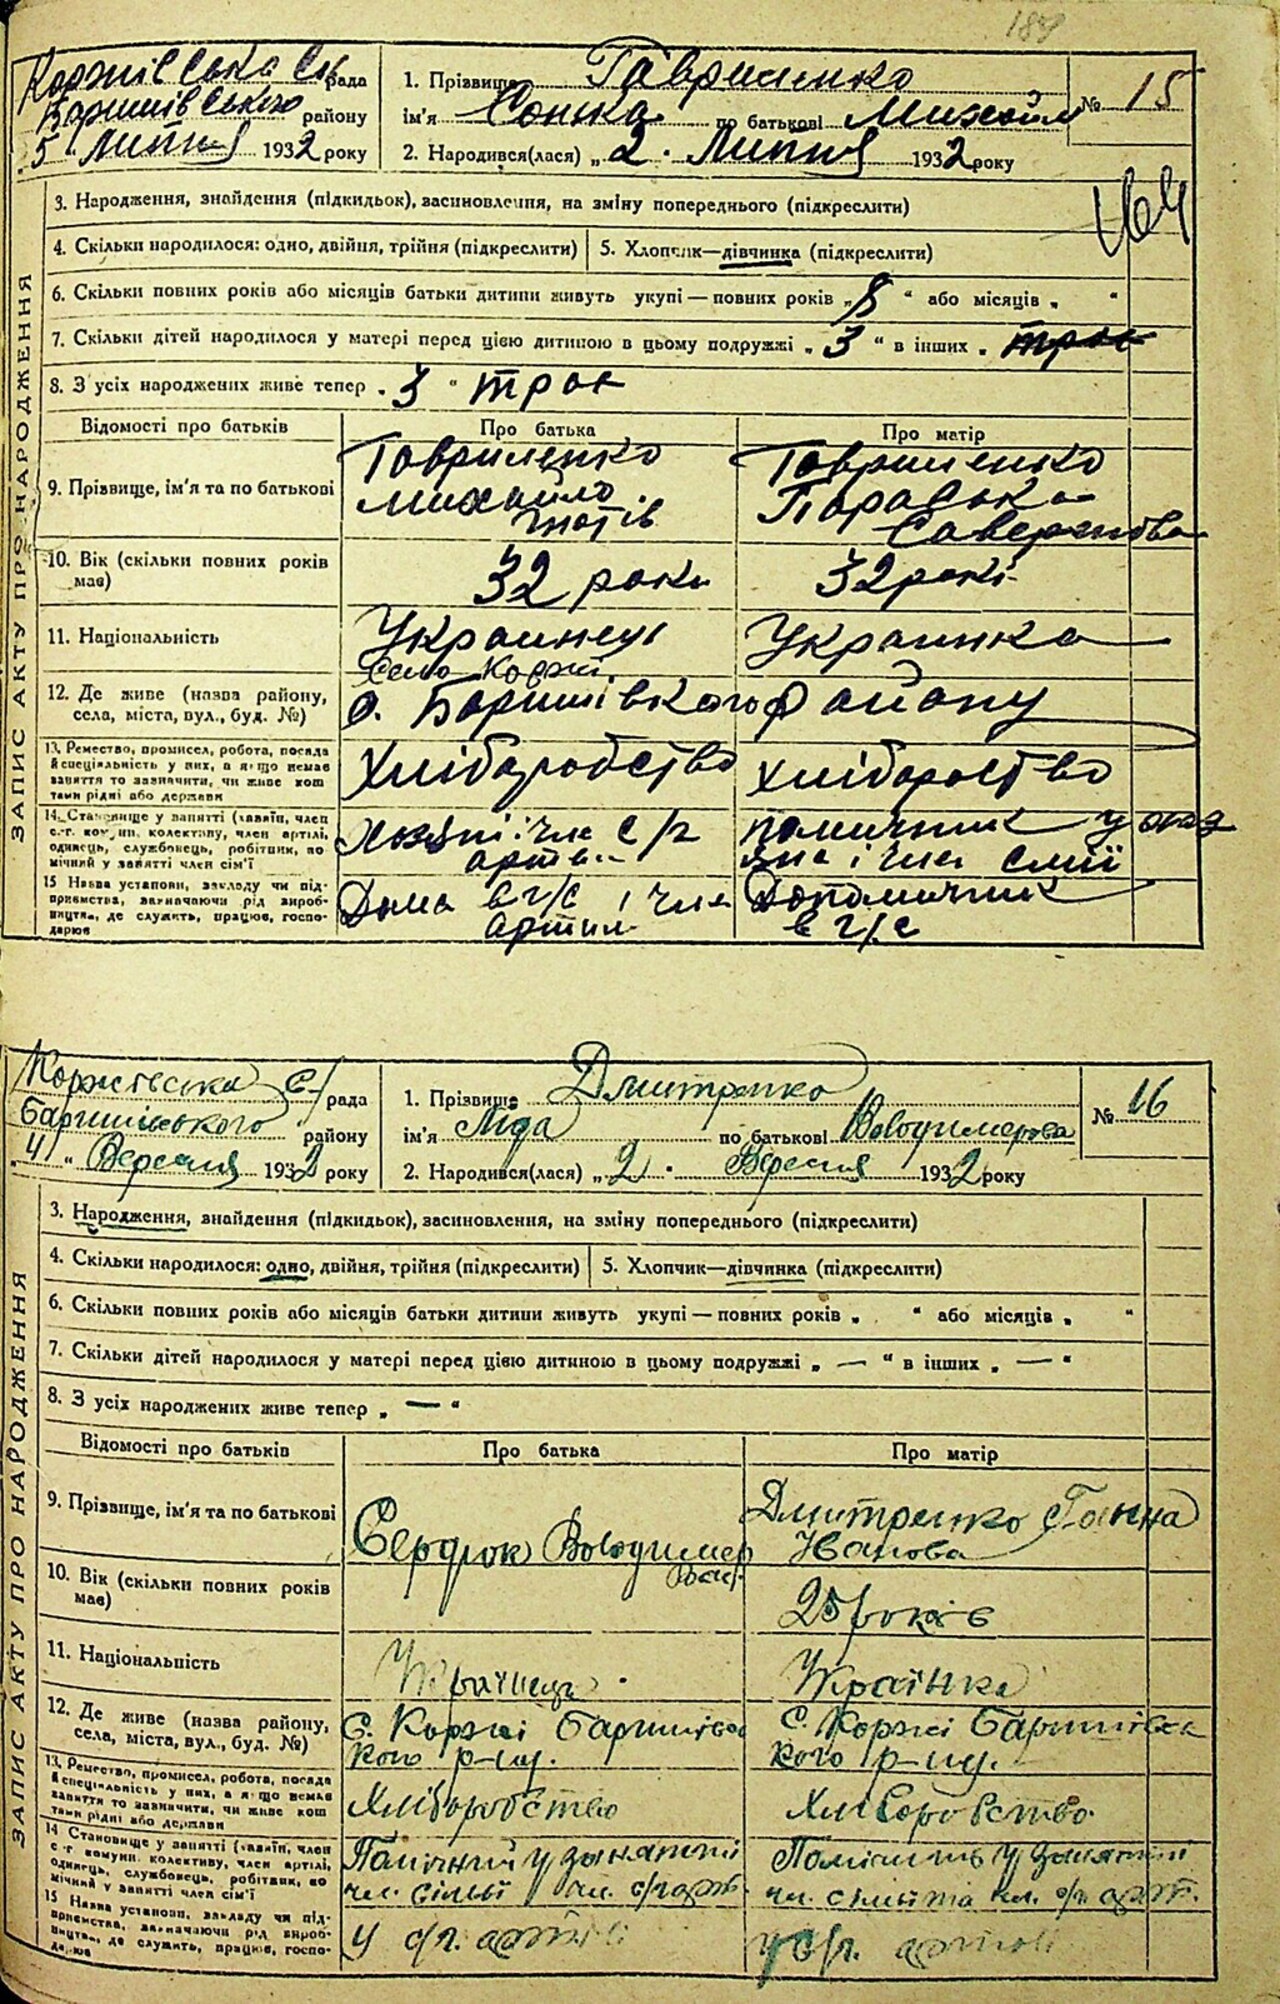 189
Коржівська с/
рада
Баришівського
району
5 Липня 1932 року
1. Прізвище Гавриленко
ім'я Сонька по батькові Михайл
2. Народився(лася) „2. Липня 1932 року
№ 15
164
ЗАПИС АКТУ ПРО НАРОДЖЕННЯ
3. Народження, знайдення (підкидьок), засиновлення, на зміну попереднього (підкреслити)
4. Скільки народилося: одно, двійня, трійня (підкреслити)
5. Хлопчик—дівчинка (підкреслити)
6. Скільки повних років або місяців батьки дитини живуть укупі — повних років „8 “ або місяців „ “
7. Скільки дітей народилося у матері перед цією дитиною в цьому подружжі „ 3 “ в інших „ троє
8. З усіх народжених живе тепер „ 3 “ троє
Відомості про батьків
Про батька
Про матір
9. Прізвище, ім'я та по батькові
Гавриленко
Михайло
Гнатів
Гавриленко
Параська
10. Вік (скільки повних років
має)
32 роки
32 рокі
11. Національність
Украинець
Украинка
12. Де живе (назва району,
села, міста, вул., буд. №)
Село Коржі
Баришівкого району
13. Ремество, промисел, робота, посада
й спеціяльність у них, а якщо немає
заняття то зазначити, чи живе кош
тами рідні або держави
Хліборобство
Хліборобство
14. Становище у занятті (хазяїн, член
с.-г. комуни, колективу, член артілі,
одинець, службовець, робітник, по
мічний у занятті член сім'ї
Хазяін і член с/г
артілі
помичник у хазя
іна і член смії
15 Назва установи, закладу чи під-
приємства, зазначаючи рід вироб-
ництва, де служить, працює, госпо-
дарює
Дома в г/с і член
артили
Допомичник
в г/с
Коржівська с/
рада
Баришівського
району
„ 4 “ Вересня 1932 року
1. Прізвище Дмитренко
ім'я Ліда по батькові Володимерова
2. Народився(лася) „ 2 . Вересня 1932 року
№ 16
ЗАПИС АКТУ ПРО НАРОДЖЕННЯ
3. Народження, знайдення (підкидьок), засиновлення, на зміну попереднього (підкреслити)
4. Скільки народилося: одно, двійня, трійня (підкреслити)
5. Хлопчик—дівчинка (підкреслити)
6. Скільки повних років або місяців батьки дитини живуть укупі — повних років „ “ або місяців „ “
7. Скільки дітей народилося у матері перед цією дитиною в цьому подружжі „ — “ в інших „ — “
8. З усіх народжених живе тепер „ — “
Відомості про батьків
Про батька
Про матір
9. Прізвище, ім'я та по батькові
Сердюк Володимер
Дмитренко Ганна
Іванова
10. Вік (скільки повних років
має)
25 років
11. Національність
Українець
Українка
12. Де живе (назва району,
села, міста, вул., буд. №)
С. Коржі Баришівсь
кого р-ну.
С. Коржі Баришівсь
кого р-ну.
13. Ремество, промисел, робота, посада
й спеціяльність у них, а якщо немає
заняття то зазначити, чи живе кош
тами рідні або держави
Хліборобство
Хліборобство
14 Становище у занятті (хазяїн, член
с.-г. комуни, колективу, член артілі,
одинець, службовець, робітник, по
мічний у занятті член сім'ї
Помічний у занятті
чл. сімьї чл. с/г арт.
Помічник у занятті
чл. сімьї та чл. с/г арт.
15 Назва установи, закладу чи під-
приємства, зазначаючи рід вироб-
ництва, де служить, працює, госпо-
дарює
у с/г. артілі
у с/г. артілі